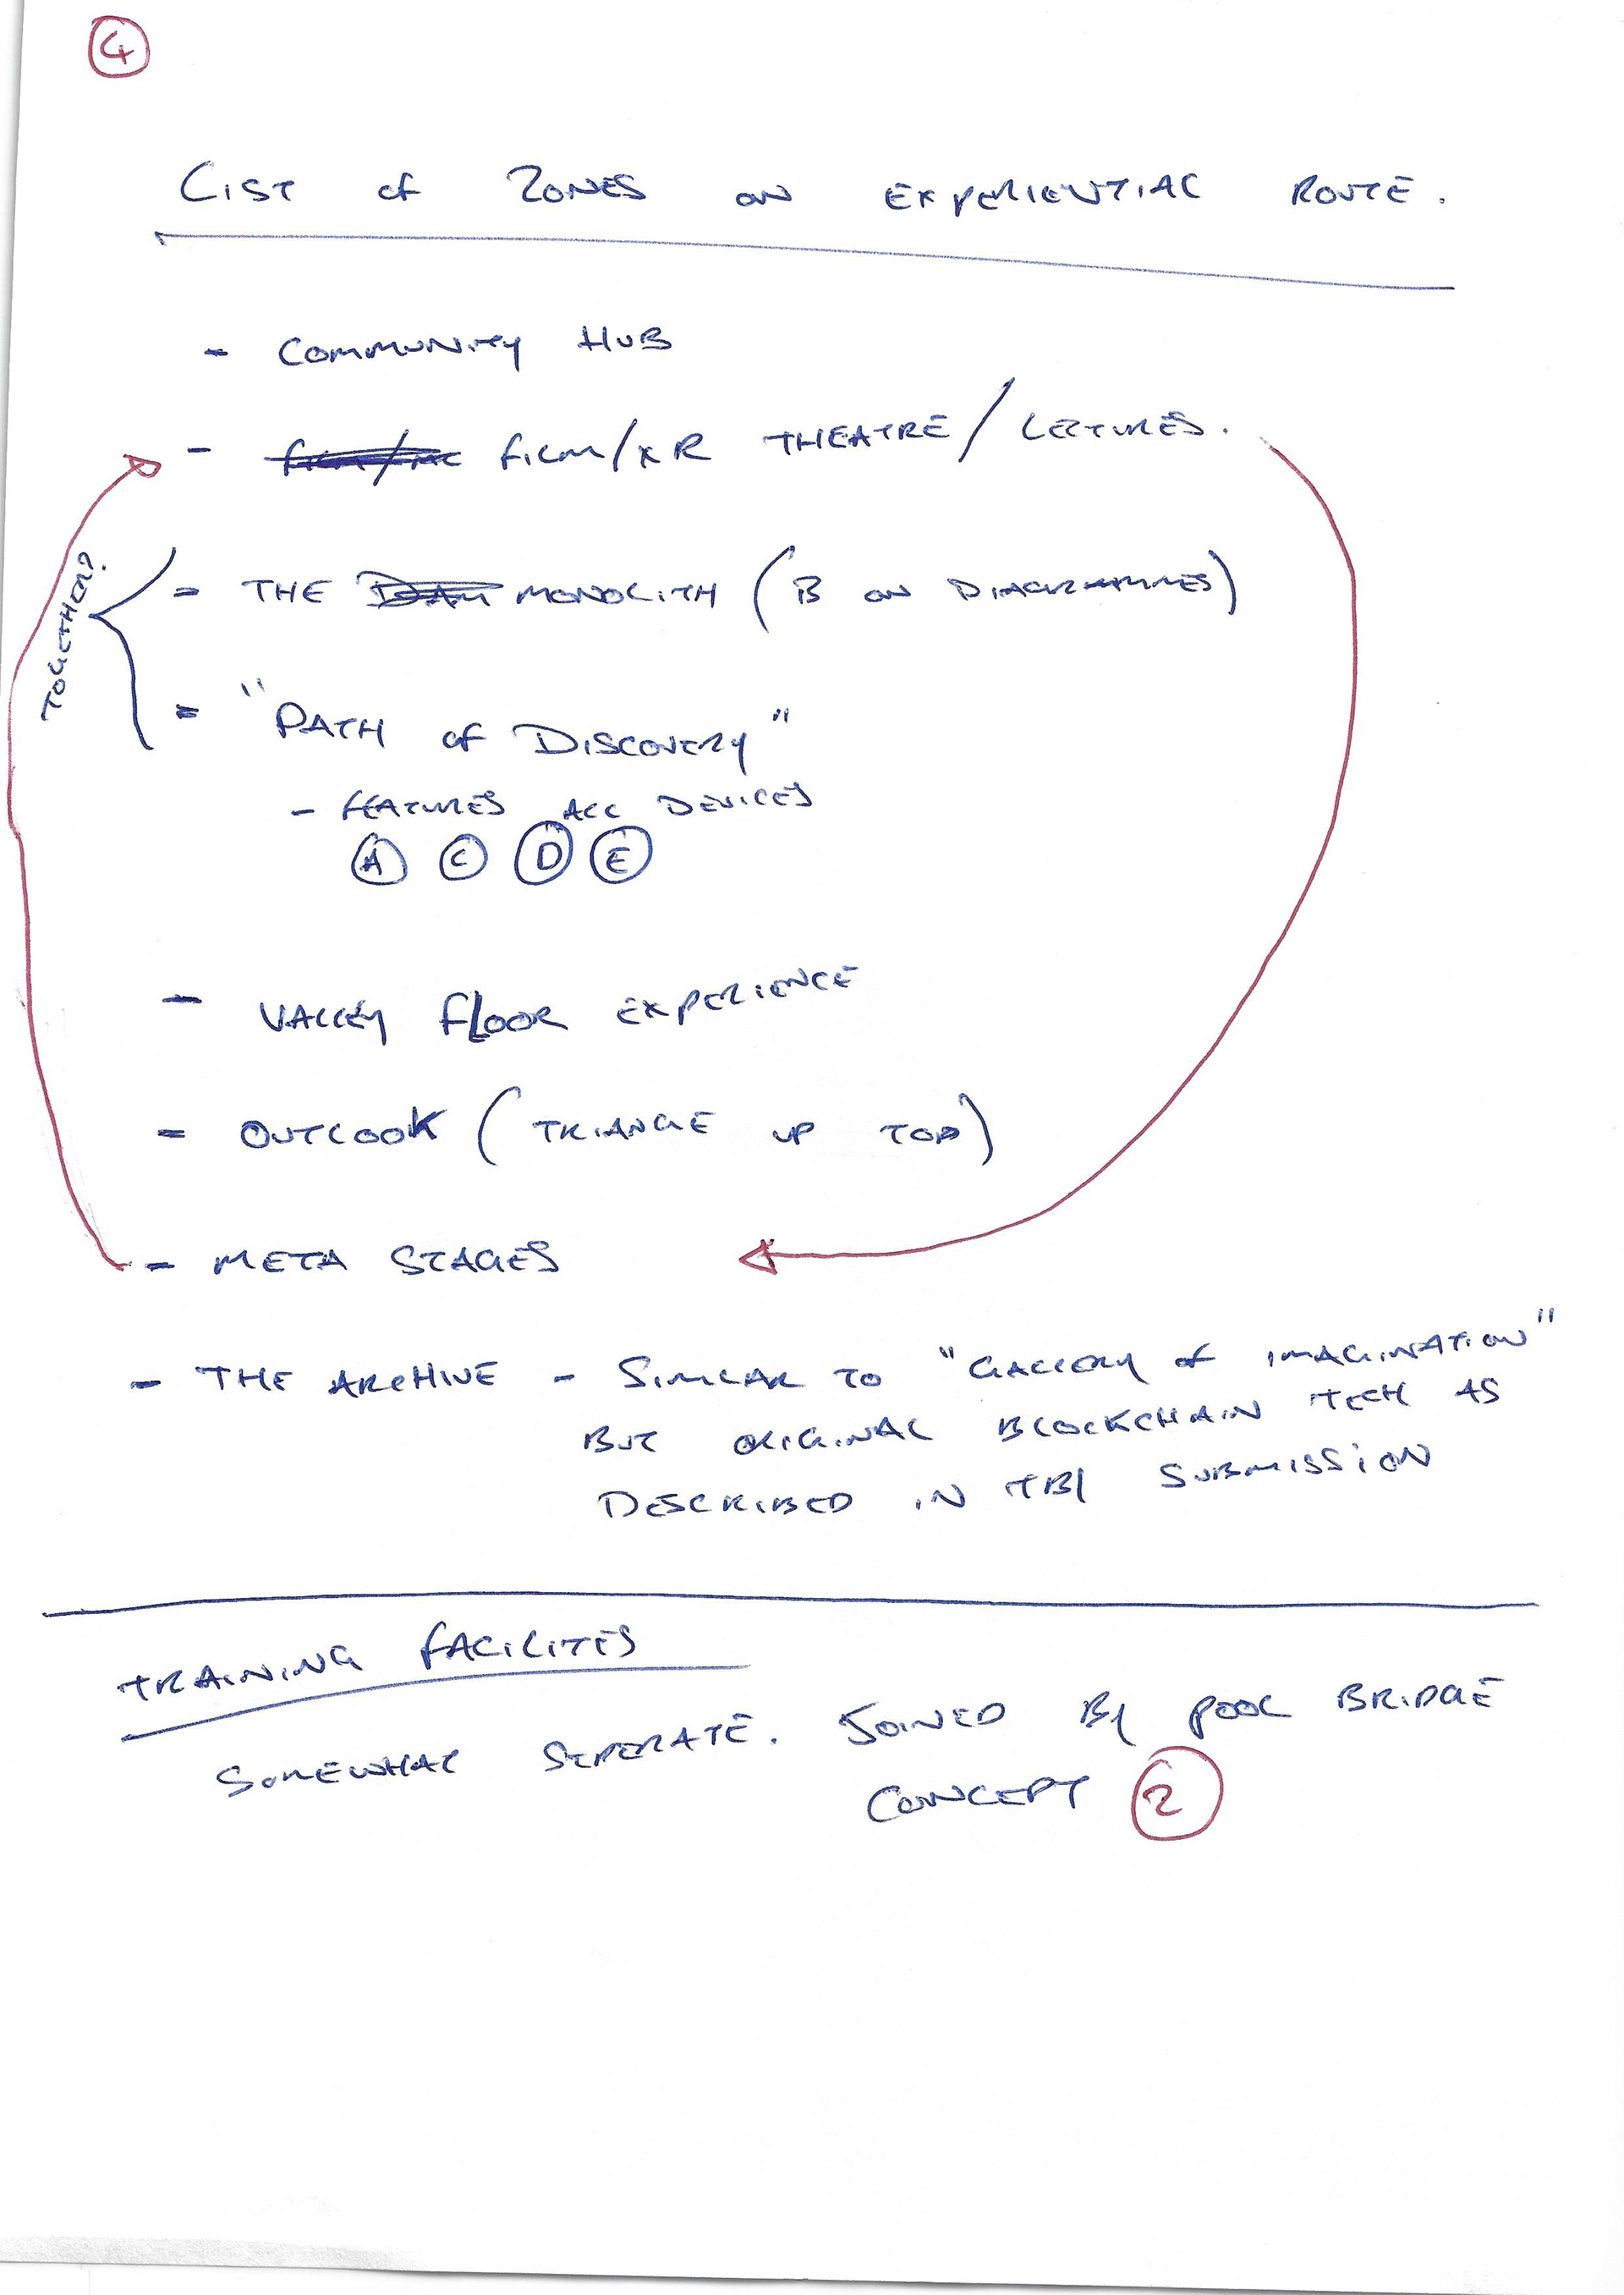 4
LIST OF ZONES ON EXPERIENTIAL ROUTE.
- COMMUNITY HUB
- FILM/XR THEATRE / LECTURES.
TOGETHER?
= THE DAM MONOLITH (B ON DIAGRAMMES)
= "PATH OF DISCOVERY"
- FEATURES ALL DEVICES
A C D E
- VALLEY FLOOR EXPERIENCE
= OUTLOOK (TRIANGLE UP TOP)
= META STAGES
- THE ARCHIVE - SIMILAR TO "GALLERY OF IMAGINATION"
BUT ORIGINAL BLOCKCHAIN TECH AS
DESCRIBED IN SUBMISSION
TRAINING FACILITES
SOMEWHAT SEPERATE. JOINED BY POOL BRIDGE
CONCEPT 2